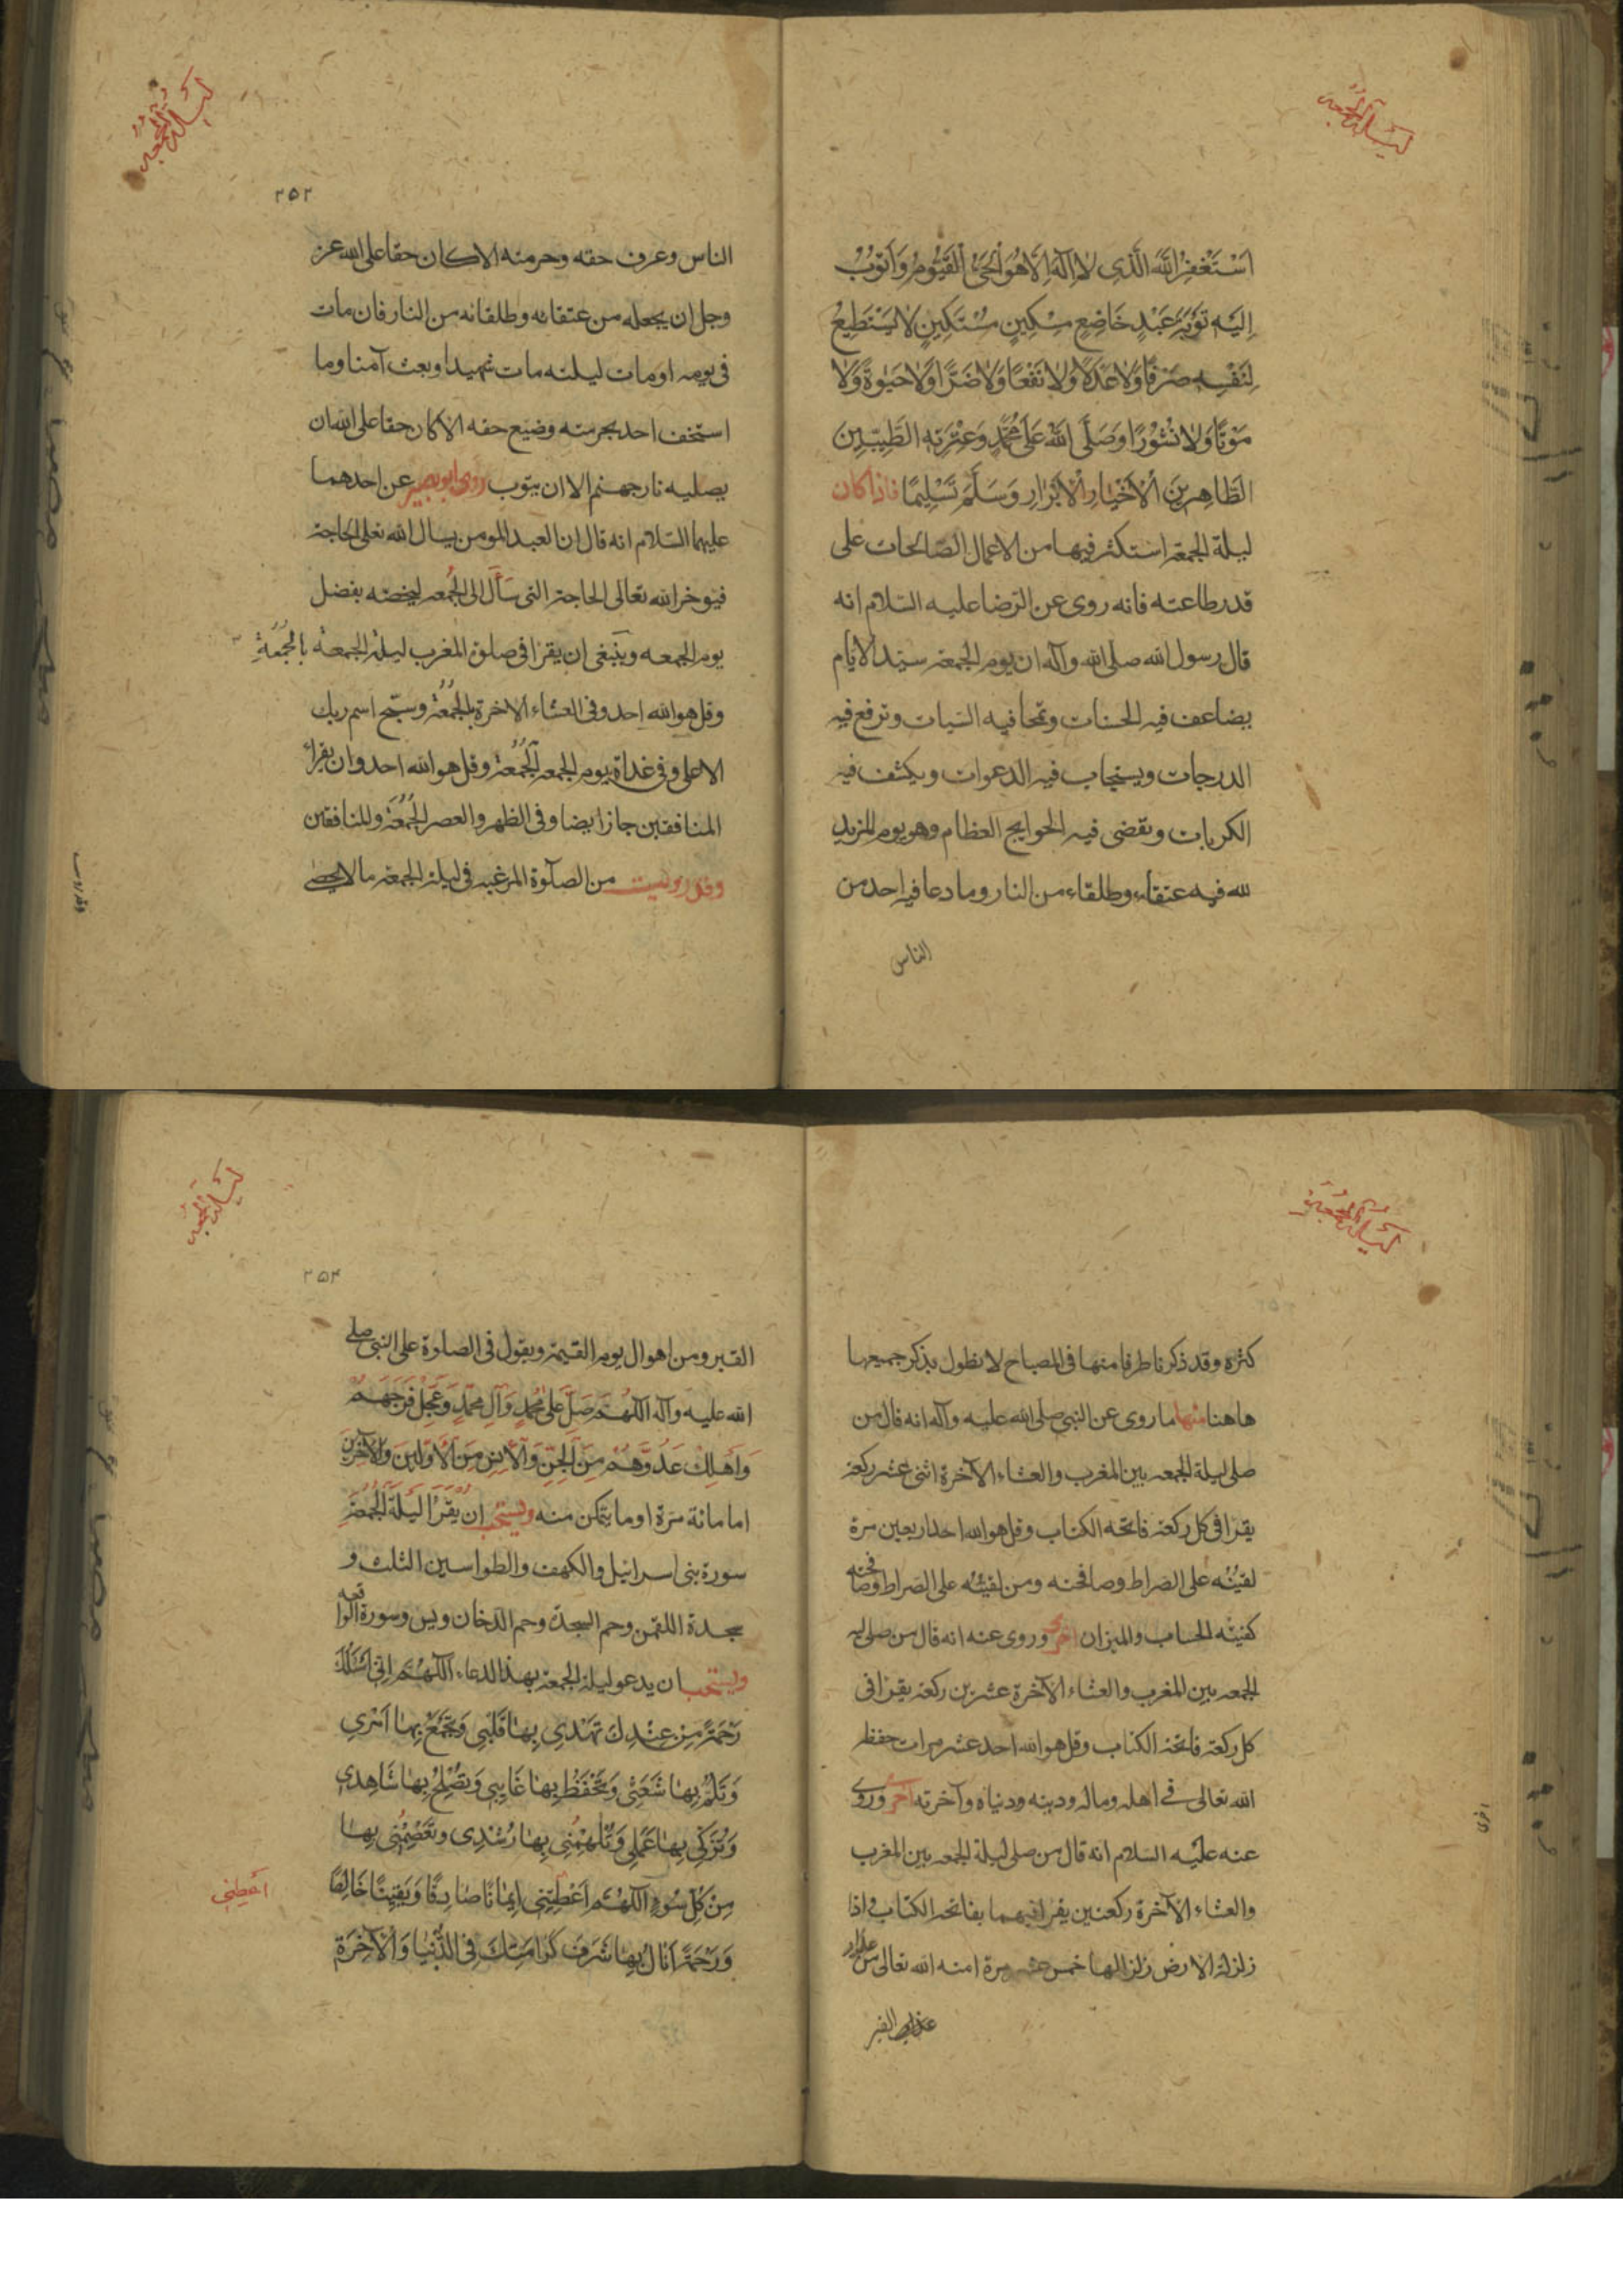 ليلة الجمعة
استغفر الله الذی لا اله الا هو الحی القيوم واتوب
اليه توبة عبد خاضع مسكين مستكين لا يستطيع
لنفسه صرفا ولا عدلا ولا نفعا ولا ضرا ولا حيوة ولا
موتا ولا نشورا وصلی الله علی محمد وعترته الطيبين
الطاهرين الاخيار الابرار وسلم تسليما فاذا كان
ليلة الجمعة استكثر فيها من الاعمال الصالحات علی
قدر طاعته فانه روی عن الرضا عليه السلام انه
قال رسول الله صلی الله وآله ان يوم الجمعة سيد الايام
يضاعف فيه الحسنات وتمحا فيه السيات وترفع فيه
الدرجات ويستجاب فيه الدعوات ويكشف فيه
الكربات وتقضی فيه الحوايج العظام وهو يوم المزيد
لله فيه عتقاء وطلقاء من النار وما دعا فيه احد من
الناس
ليلة الجمعة
٢٥٢
الناس وعرف حقه وحرمته الا كان حقا علی الله عز
وجل ان يجعله من عتقائه وطلقائه من النار فان مات
فی يومه او مات ليلته مات شهيدا وبعث آمنا وما
استخف احد بحرمته وضيع حقه الا كان حقا علی الله ان
يصليه نار جهنم الا ان يتوب روی ابو بصير عن احدهما
عليهما السلام انه قال ان العبد المومن يسال الله تعلی الحاجة
فيوخر الله تعالی الحاجة التی سأل الی الجمعه ليخصه بفضل
يوم الجمعه وينبغی ان يقرا فی صلوة المغرب ليلة الجمعة بالجمعة
وقل هو الله احد وفی العشاء الاخرة بالجمعة وسبح اسم ربك
الاعلی وفی غداة يوم الجمعه الجمعة وقل هو الله احد وان يقراء
المنافقين جاز ايضا وفی الظهر والعصر الجمعة والمنافقين
وقد رويت من الصلوة المرغبه فی ليلة الجمعة ما لا يحصی
ليلة الجمعة
كثرة وقد ذكرنا طرفا منها فی المصباح لا نطول بذكر جميعها
هاهنا منها ما روی عن النبی صلی الله عليه وآله انه قال من
صلی ليلة الجمعه بين المغرب والعشاء الآخرة اثنی عشر ركعة
يقرا فی كل ركعة فاتحه الكتاب وقل هو الله احد اربعين مرة
لقيته علی الصراط وصافحته ومن لقيته علی الصراط وصافحته
كفيته الحساب والميزان اخری وروی عنه انه قال من صلی ليلة
الجمعه بين المغرب والعشاء الآخرة عشرين ركعة يقرا فی
كل ركعة فاتحة الكتاب وقل هو الله احد عشر مرات حفظه
الله تعالی فی اهله وماله ودينه ودنياه وآخرته اخری وروی
عنه عليه السلام انه قال من صلی ليلة الجمعه بين المغرب
والعشاء الآخرة ركعتين يقرا فيهما بفاتحة الكتاب واذا
زلزلة الارض زلزالها خمس عشر مرة امنه الله تعالی من
عذاب القبر
ليلة الجمعة
٢٥٤
القبر ومن اهوال يوم القيمة ويقول فی الصلوة علی النبی صلی
الله عليه وآله اللهم صل علی محمد وآل محمد وعجل فرجهم
واهلك عدوهم من الجن والانس من الاولين والآخرين
اما مائة مرة او ما يتمكن منه ويستحب ان يقرا ليلة الجمعة
سورة بنی اسرائيل والكهف والطواسين الثلث و
سجدة اللقمن وحم السجدة وحم الدخان ويس وسورة الواقعه
ويستحب ان يدعو ليلة الجمعة بهذا الدعاء اللهم انی اسئلك
رحمة من عندك تهدی بها قلبی وتجمع بها امری
وتلم بها شعثی وتحفظ بها غايبی وتصلح بها شاهدی
وتزكی بها عملی وتلهمنی بها رشدی وتعصمنی بها
من كل سوء اللهم اعطنی ايمانا صادقا ويقينا خالصا
ورحمة انال بها شرف كرامتك فی الدنيا والآخرة
اعطنی